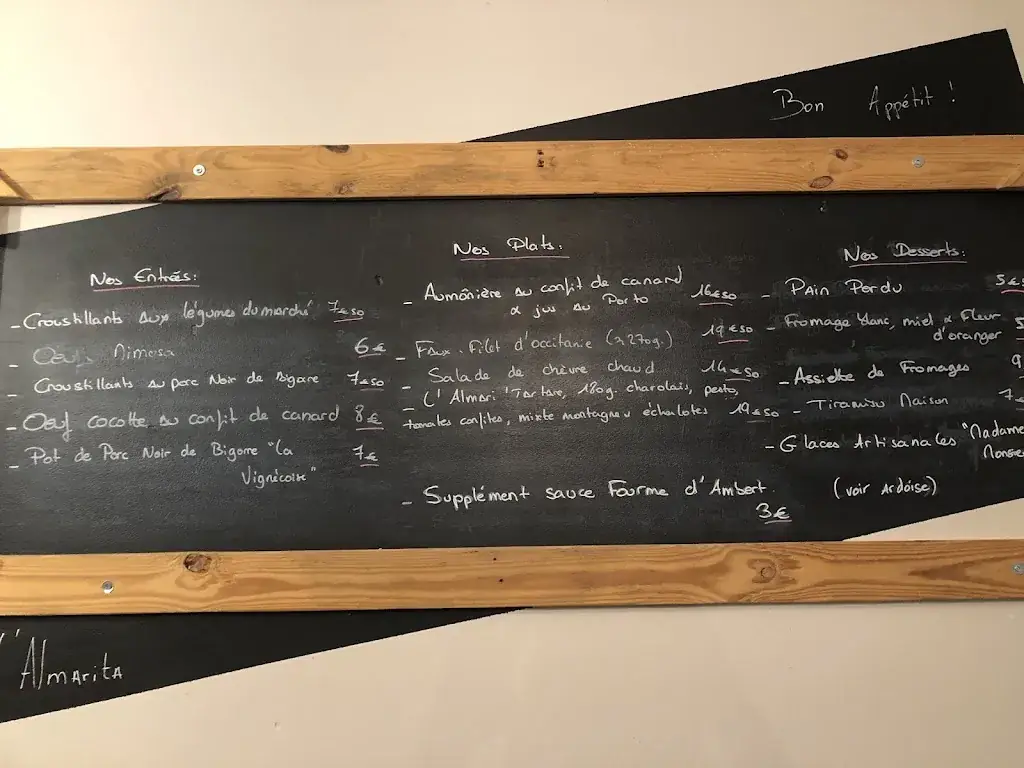 Bon Appétit !
Nos Entrés:
- Croustillants aux légumes du marché 7€50
- Oeufs Mimosa 6€
- Croustillants au porc Noir de Bigore 7€50
- Oeuf cocotte au confit de canard 8€
- Pot de Porc Noir de Bigorre "la 7€
Vignécoise"
Nos Plats:
- Aumônière au confit de canard 16€50
& jus au Porto
- Faux-Filet d'occitanie (≈270g.) 19€50
- Salade de chèvre chaud 14€50
- L'Almari'Tartare, 180g. charolais, pesto,
tomates confites, mixte montagne & échalotes 19€50
- Supplément sauce Fourme d'Ambert.
3€
Nos Desserts:
- Pain Perdu 5€5
- Fromage blanc, miel & Fleur 5
d'oranger
- Assiette de Fromages 9
- Tiramisu Maison 7€
- Glaces Artisanales "Madame
Monsie
(voir Ardoise)
L'Almarita